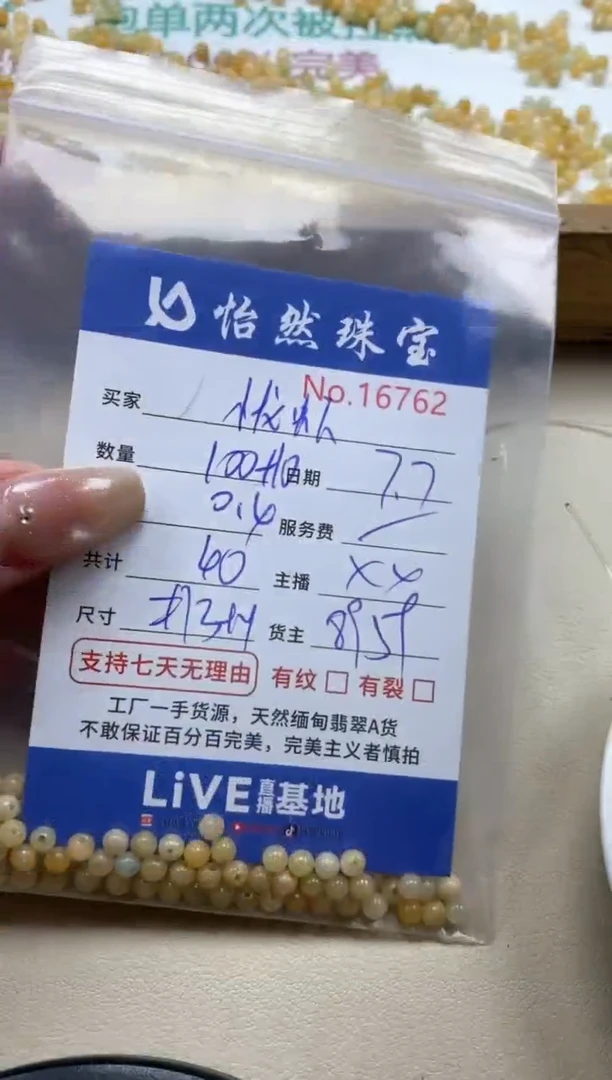 完美
怡然珠宝
No.16762
买家
数量 100 日期 7.7
0.4 服务费
共计 40 主播 XX
尺寸 货主
支持七天无理由 有纹 有裂
工厂一手货源，天然缅甸翡翠A货
不敢保证百分百完美，完美主义者慎拍
LiVE直播基地